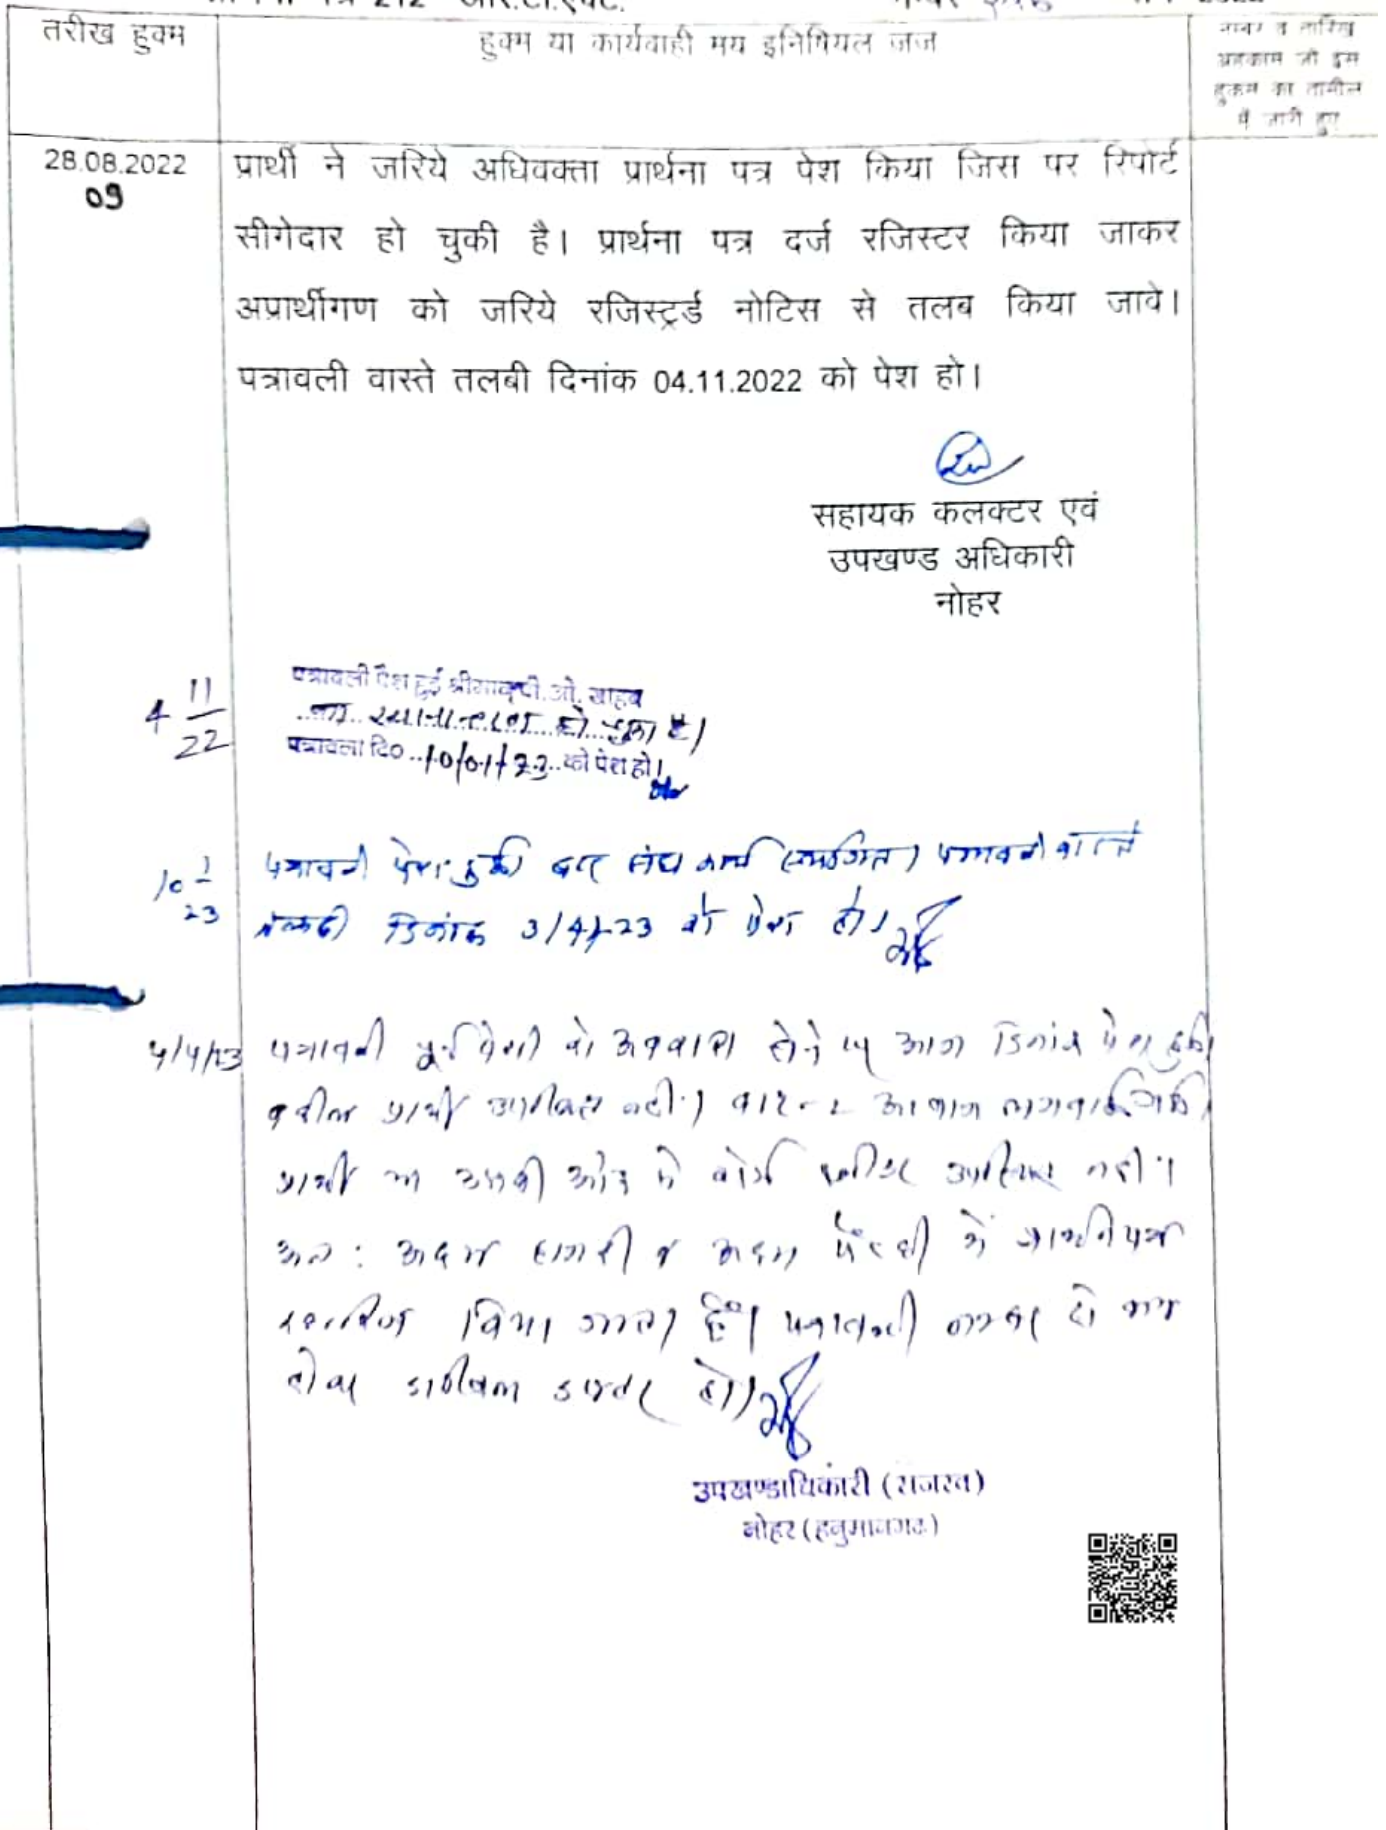 212 आर.टी.एक्ट.
तरीख हुक्म
हुक्म या कार्यवाही मय इनिषियल जज
नम्बर व तारिख
अहकाम जो इस
हुकम का तामील
में जारी हुए
28.08.2022
09
प्रार्थी ने जरिये अधिवक्ता प्रार्थना पत्र पेश किया जिस पर रिपोर्ट
सीगेदार हो चुकी है। प्रार्थना पत्र दर्ज रजिस्टर किया जाकर
अप्रार्थीगण को जरिये रजिस्ट्रर्ड नोटिस से तलब किया जावे।
पत्रावली वास्ते तलबी दिनांक 04.11.2022 को पेश हो।
सहायक कलक्टर एवं
उपखण्ड अधिकारी
नोहर
4 11/22
पत्रावली पेश हुई श्रीमान् पी. ओ. साहब
का स्थानान्तरण हो चुका है।
पत्रावली दि० 10/01/23 को पेश हो।
10 1/23
पत्रावली पेश हुई बार संघ कार्य स्थगित। पत्रावली वास्ते
तलबी दिनांक 3/4/23 को पेश हो।
4/4/23
पत्रावली पूर्व पेशी को अवकाश होने पर आज दिनांक पेश हुई।
वकील प्रार्थी उपस्थित नहीं। बार-2 आवाज लगवाई गई।
प्रार्थी या उसकी ओर से कोई उपस्थित नहीं।
अतः अदम हाजरी व अदम पैरवी में प्रार्थना पत्र
खारिज किया जाता है। पत्रावली नम्बर से कम
होकर दाखिल दफ्तर हो।
उपखण्डाधिकारी (राजस्व)
नोहर (हनुमानगढ़)